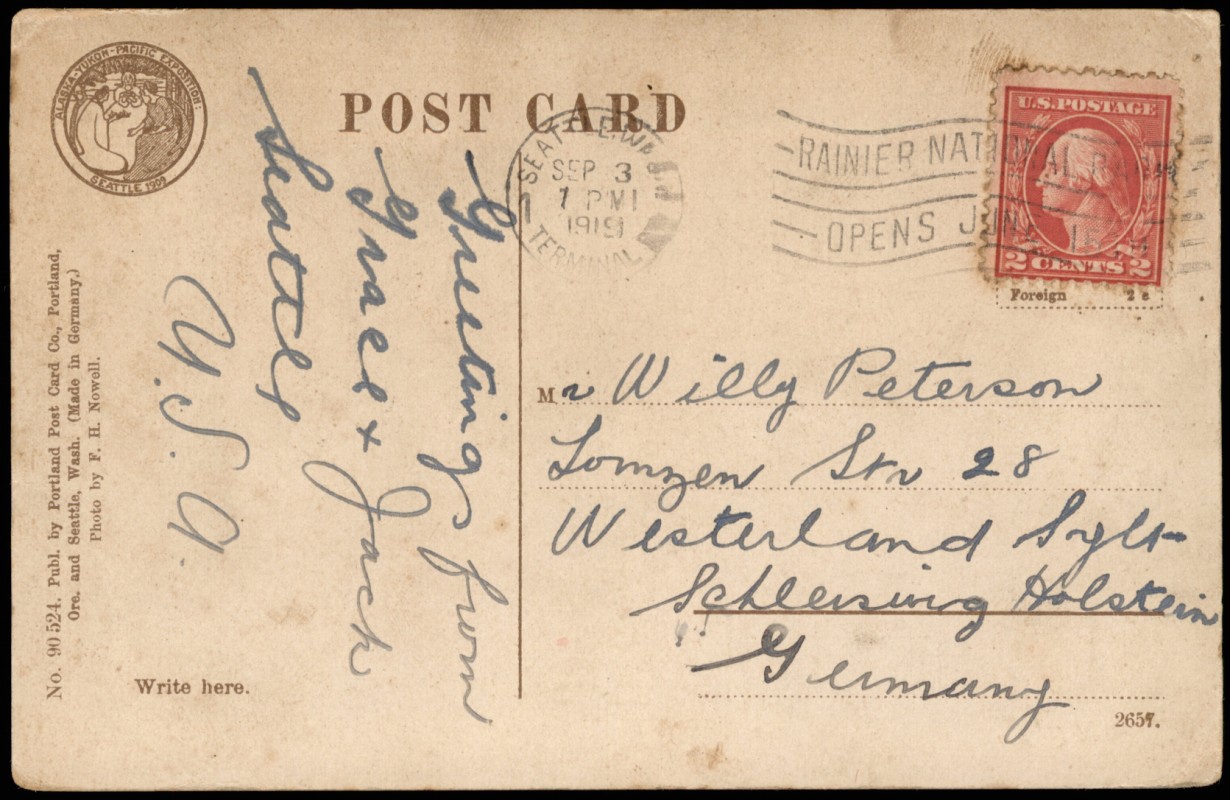 ALASKA-YUKON-PACIFIC EXPOSITION:
SEATTLE 1909
POST CARD
SEATTLE, WASH.
SEP 3
7 PM
1919
TERMINAL
1
RAINIER NATIONAL PARK
OPENS JUNE 15
U.S. POSTAGE
2 CENTS 2
Foreign 2 c
Greetings from
Grace + Jack
Seattle
U.S.A.
No. 90524. Publ. by Portland Post Card Co., Portland,
Ore. and Seattle, Wash. (Made in Germany.)
Photo by F. H. Nowell.
Write here.
Mr Willy Peterson
Lornzen Str 28
Westerland Sylt-
Schleswig Holstein
Germany
2657.